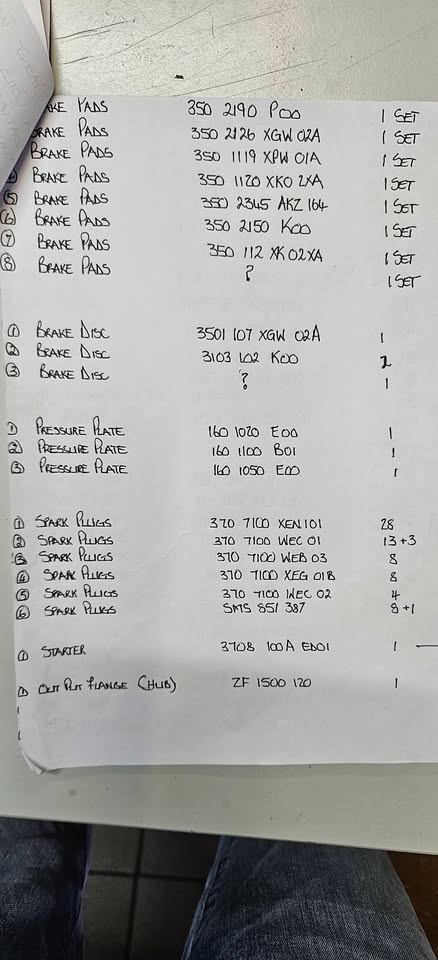 BRAKE PADS 350 2190 P00 1 SET
BRAKE PADS 350 2126 XGW 02A 1 SET
BRAKE PADS 350 1119 XPW 01A 1 SET
BRAKE PADS 350 1120 XKO 2XA 1 SET
⑤ BRAKE PADS 350 2345 AKZ 164 1 SET
⑥ BRAKE PADS 350 2150 K00 1 SET
⑦ BRAKE PADS 350 112 XK 02XA 1 SET
⑧ BRAKE PADS ? 1 SET
① BRAKE DISC 3501 107 XGW 02A 1
② BRAKE DISC 3103 102 K00 2
③ BRAKE DISC ? 1
① PRESSURE PLATE 160 1020 E00 1
② PRESSURE PLATE 160 1100 B01 1
③ PRESSURE PLATE 160 1050 E00 1
① SPARK PLUGS 370 7100 XEN 101 28
② SPARK PLUGS 370 7100 WEC 01 13 +3
③ SPARK PLUGS 370 7100 WEB 03 8
④ SPARK PLUGS 370 7100 XEG 01B 8
⑤ SPARK PLUGS 370 7100 WEC 02 4
⑥ SPARK PLUGS SMS 851 387 8 +1
① STARTER 3708 100A ED01 1
① OUT PUT FLANGE (HUB) ZF 1500 120 1